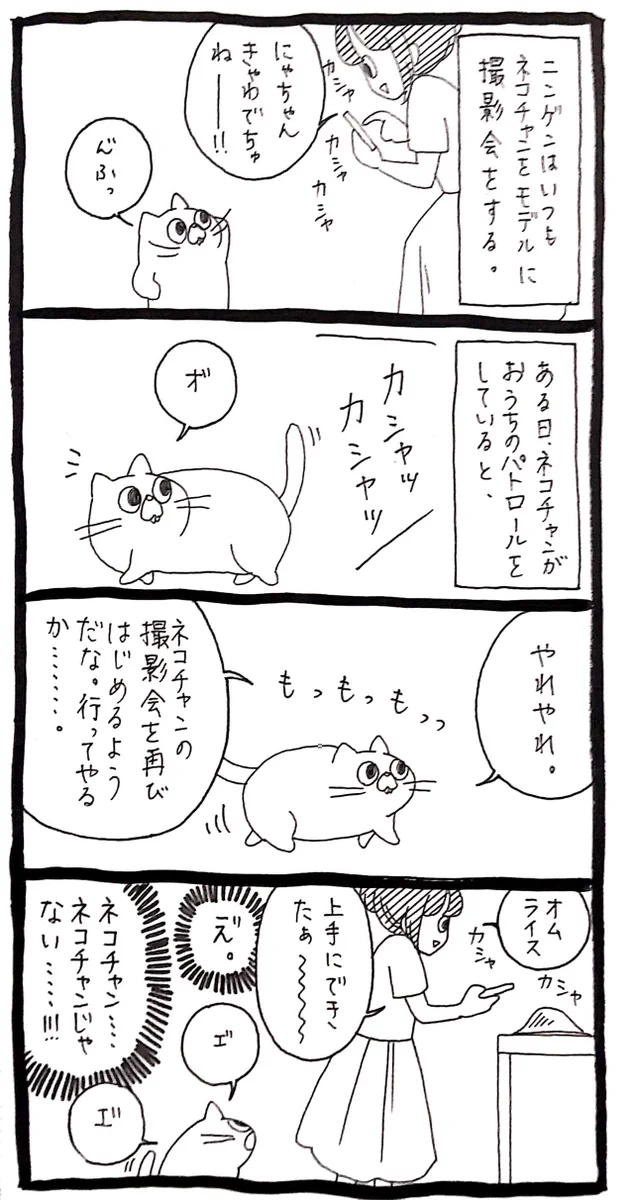 ニンゲンはいつも
ネコチャンをモデルに
撮影会をする。
カシャ
カシャ
カシャ
にゃちゃん
きゃわでちゅ
ねー!!
んふっ
ある日、ネコチャンが
おうちのパトロールを
していると、
カシャッ
カシャッ
オ゛
やれやれ。
もっもっもっっ
ネコチャンの
撮影会を再び
はじめるよう
だな。行ってやる
か……。
オム
ライス
カシャ
カシャ
上手にでき、
たぁ〜〜〜
え゛。
エ゛
エ゛
ネコチャン……
ネコチャンじゃ
ない……!!!